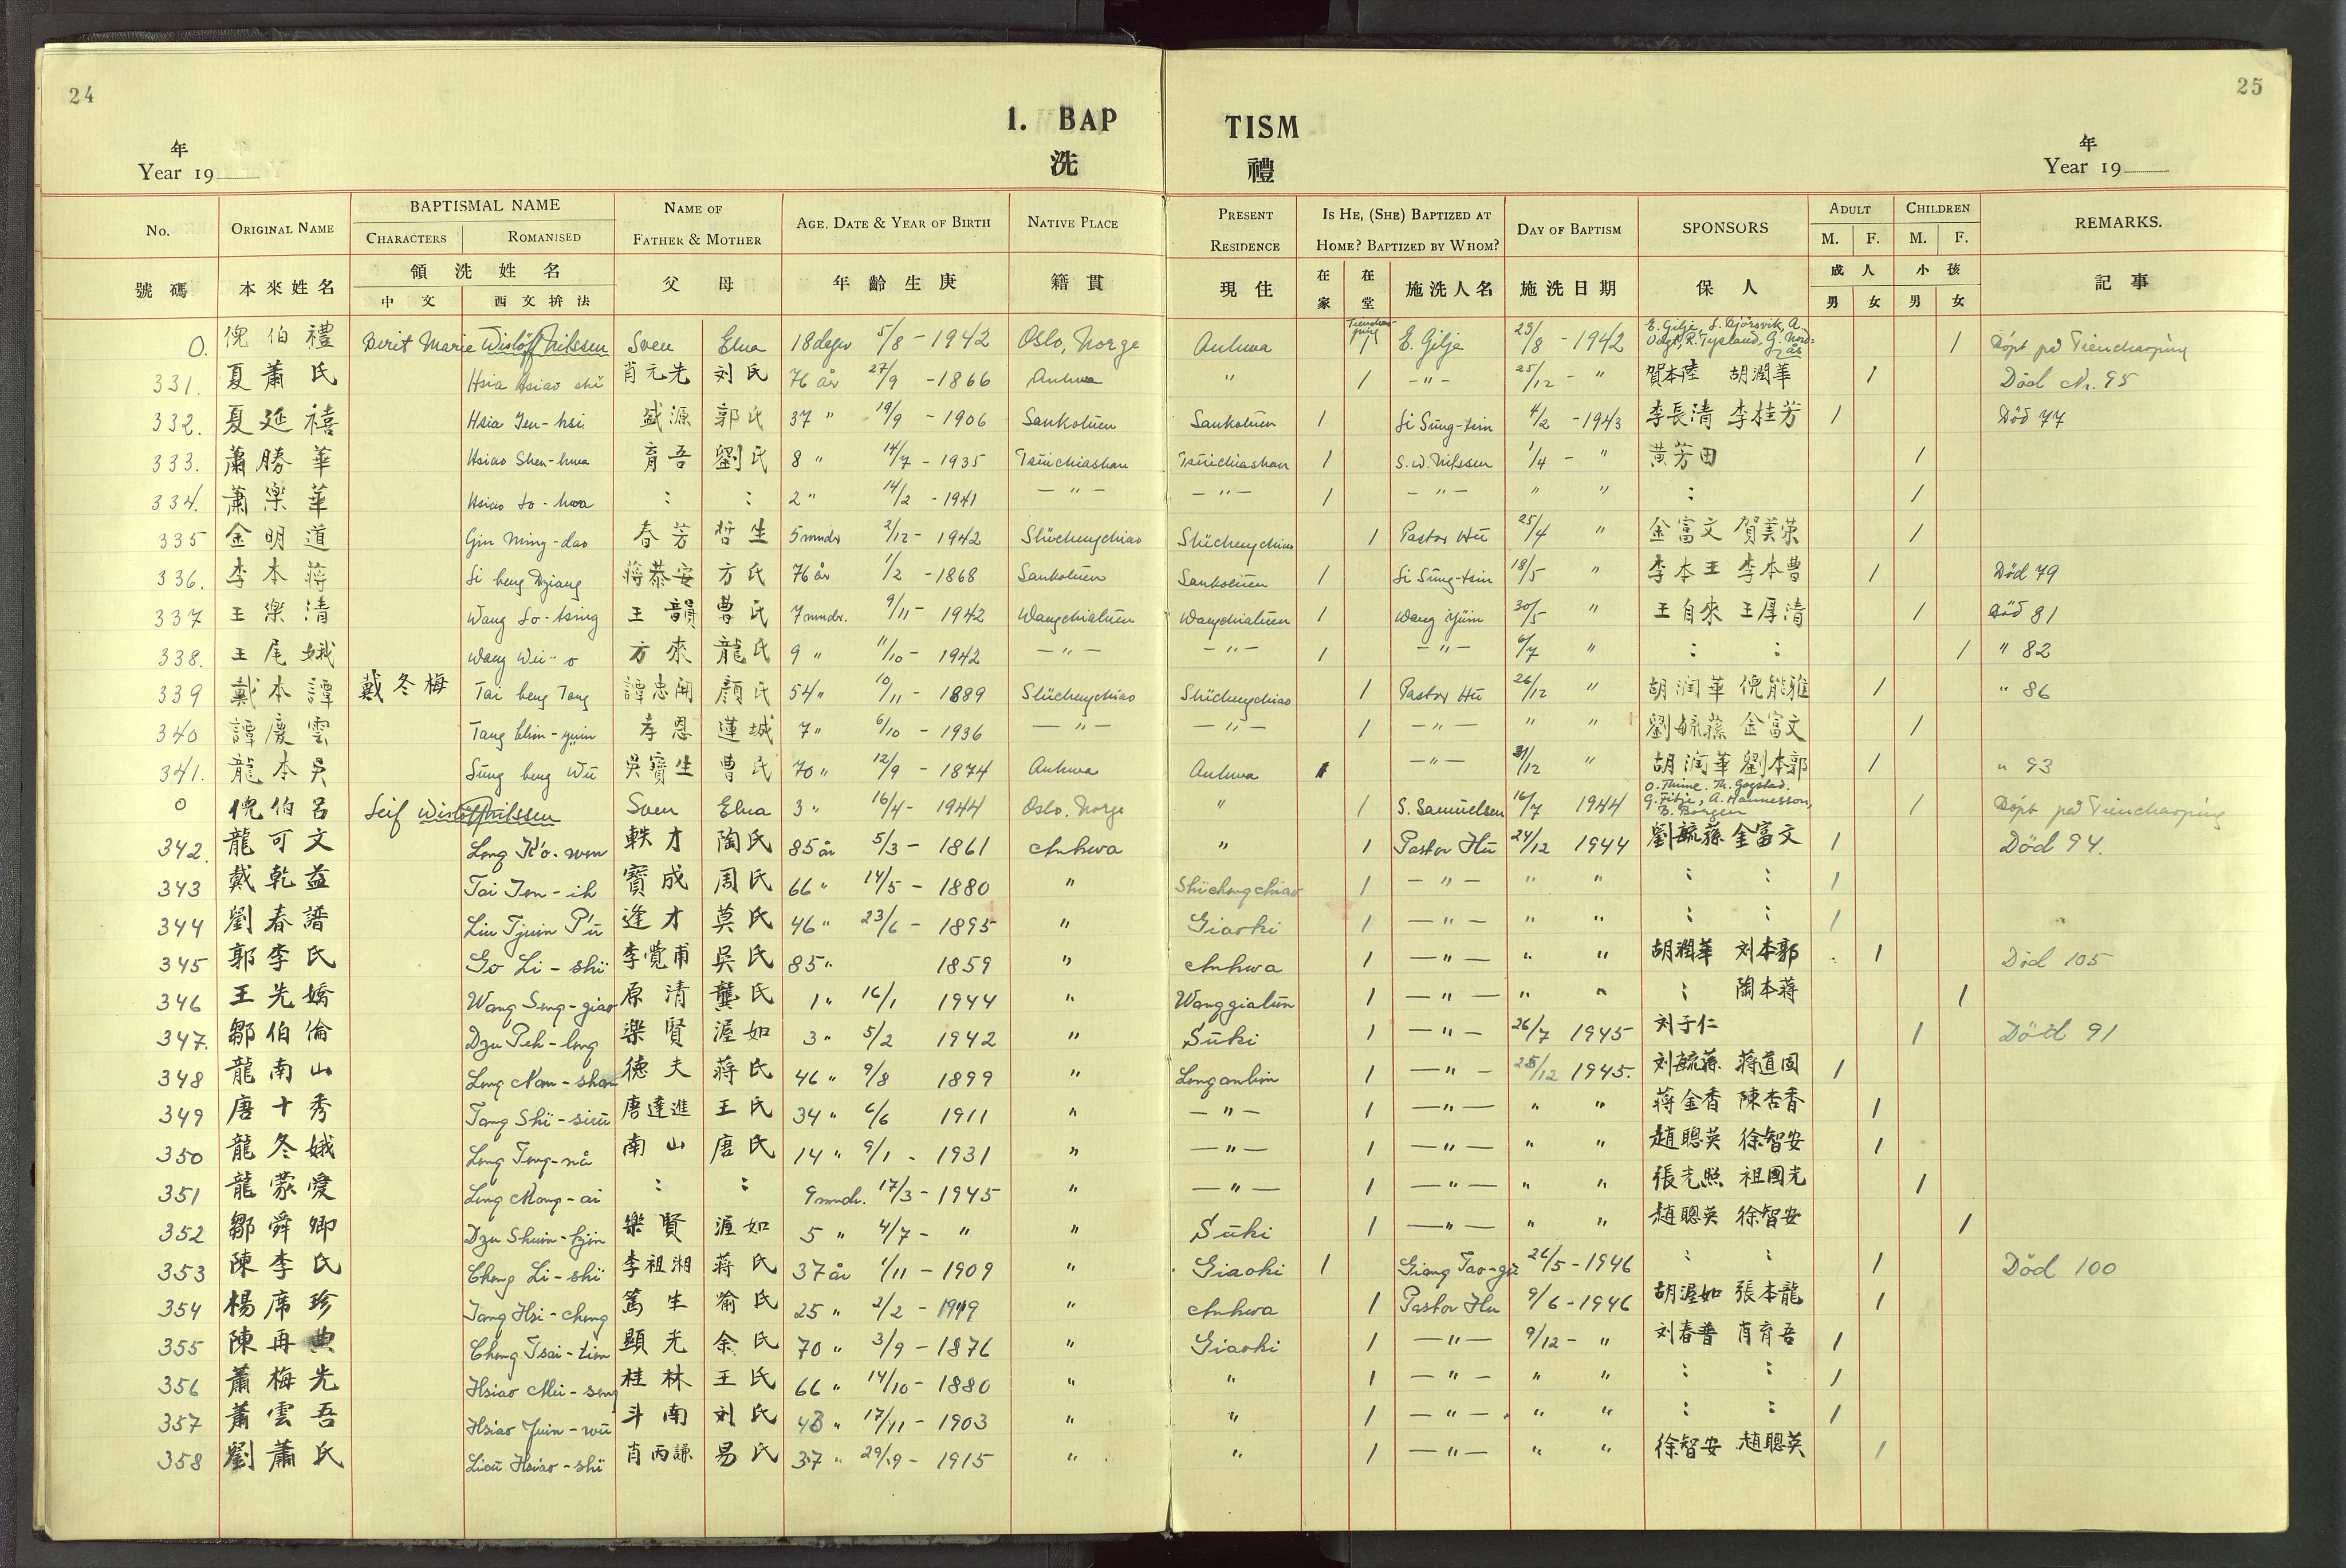 24
25
1. BAP TISM
洗 禮
年 Year 19
年 Year 19
No. | ORIGINAL NAME | BAPTISMAL NAME | NAME OF FATHER & MOTHER | AGE. DATE & YEAR OF BIRTH | NATIVE PLACE | PRESENT RESIDENCE | IS HE, (SHE) BAPTIZED AT HOME? BAPTIZED BY WHOM? | DAY OF BAPTISM | SPONSORS | ADULT | CHILDREN | REMARKS.
CHARACTERS | ROMANISED | M. | F. | M. | F.
號碼 | 本來姓名 | 領洗姓名 | 父 母 | 年齡生庚 | 籍貫 | 現住 | 在家 | 在堂 | 施洗人名 | 施洗日期 | 保人 | 成人 | 小孩 | 記事
中文 | 西文拚法 | 男 | 女 | 男 | 女
0. 倪伯禮 Berit Marie Wislöff Nilssen Sven Elna 18 dager 5/8 - 1942 Oslo, Norge Anhwa 1 E. Gilje 23/8 - 1942 E. Gilje, 1 Döpt på Tiencharping
331. 夏蕭氏 Hsia Hsiao shï 肖元光 刘氏 76 år 27/9 - 1866 Anhwa " 1 - " - 25/12 - " 賀本陸 胡潤華 1 Död Nr. 95
332. 夏延禧 Hsia Yen-hsi 盛源 郭氏 37 " 19/9 - 1906 Sankoluen Sankoluen 1 Li Sung-tsin 4/2 - 1943 李長清 李桂芳 1 Död 77
333. 蕭勝華 Hsiao Shen-hwa 育吾 劉氏 8 " 14/7 - 1935 Tsüichiashan Tsüichiashan 1 S. W. Nilssen 1/4 - " 黄芳田 1
334. 蕭樂華 Hsiao Lo-hwa : : 2 " 14/2 - 1941 - " - - " - 1 - " - " " : 1
335 金明道 Gin Ming-dao 春芳 哲生 5 mndr 2/12 - 1942 Shïchengchiao Shïchengchiao 1 Pastor Hu 25/4 " 金富文 賀美榮 1
336. 李本蔣 Li beng Dziang 蔣恭安 方氏 76 år 1/2 - 1868 Sankoluen Sankoluen 1 Li Sung-tsin 18/5 " 李本王 李本曹 1 Död 79
337 王樂清 Wang Lo-tsing 王韻 曹氏 7 mndr. 9/11 - 1942 Wangchialuen Wangchialuen 1 Wang Yüin 30/5 " 王自來 王厚清 1 Död 81
338. 王尾娥 Wang Wei-o 方來 龍氏 9 " 11/10 - 1942 - " - - " - 1 - " - 6/7 " : : 1 " 82
339 戴本譚 戴冬梅 Tai beng Tang 譚忠開 顏氏 54 " 10/11 - 1889 Shïchengchiao Shïchengchiao 1 Pastor Hu 26/12 " 胡潤華 倪能雅 1 " 86
340 譚慶雲 Tang Chin-yüin 孝恩 蓮城 7 " 6/10 - 1936 - " - - " - 1 - " - " " 劉毓蓀 金富文 1
341. 龍本吳 Lung beng Wu 吳寶生 曹氏 70 " 12/9 - 1874 Anhwa Anhwa 1 - " - 31/12 " 胡潤華 劉本郭 1 " 93
0 倪伯呂 Leif Wislöff Nilssen Sven Elna 3 " 16/4 - 1944 Oslo, Norge " 1 S. Samuelsen 16/7 1944 O. Thime. Th. Gogstad. G. Fitje, A. Hannesson, B. Borgen 1 Döpt på Tiencharping
342. 龍可文 Long K'o-wen 軼才 陶氏 85 år 5/3 - 1861 Anhwa " 1 Pastor Hu 24/12 1944 劉毓蓀 金富文 1 Död 94.
343 戴乾益 Tai Jen-ih 寶成 周氏 66 " 14/5 - 1880 " Shïchengchiao 1 - " - " " : : 1
344 劉春譜 Liu Tjuin P'u 逢才 莫氏 46 " 23/6 - 1895 " Giaoki 1 - " - " " : : 1
345 郭李氏 Go Li-shï 李覺甫 吳氏 85 " 1859 " Anhwa 1 - " - " " 胡潤華 刘本郭 1 Död 105
346 王先嬌 Wang Seng-giao 原清 龔氏 1 " 16/1 1944 " Wanggialün 1 - " - " " : 陶本蔣 1
347. 鄒伯倫 Dzu Peh-long 樂賢 渥如 3 " 5/2 1942 " Suki 1 - " - 26/7 1945 刘子仁 1 Död 91
348 龍南山 Long Nan-shan 德夫 蔣氏 46 " 9/8 1899 " Longanhin 1 - " - 25/12 1945. 刘毓蓀 蔣道固 1
349 唐十秀 Tang Shï-siu 唐達進 王氏 34 " 6/6 1911 " - " - 1 - " - " " 蔣金香 陳杏香 1
350 龍冬娥 Long Tong-nå 南山 唐氏 14 " 9/1 - 1931 " - " - 1 - " - " " 趙聰英 徐智安 1
351 龍蒙愛 Long Mong-ai : : 9 mndr. 17/3 - 1945 " - " - 1 - " - " " 張光照 祖國光 1
352 鄒舜卿 Dzu Shuin-tjin 樂賢 渥如 5 " 4/7 - " " Suki 1 - " - " " 趙聰英 徐智安 1
353 陳李氏 Cheng Li-shï 李祖湘 蔣氏 37 år 1/11 - 1909 " Giaoki 1 Giang Tao-gu 26/5 - 1946 : : 1 Död 100
354 楊席珍 Jang Hsi-cheng 篤生 喻氏 25 " 2/2 - 1919 " Anhwa 1 Pastor Hu 9/6 - 1946 胡渥如 張本龍 1
355 陳再典 Cheng Tsai-tien 顯光 余氏 70 " 3/9 - 1876 " Giaoki 1 - " - 9/12 - " 刘春普 肖育吾 1
356 蕭梅光 Hsiao Mei-seng 桂林 王氏 66 " 14/10 - 1880 " " 1 - " - " " : : 1
357 蕭雲吾 Hsiao Juin-wu 斗南 刘氏 43 " 17/11 - 1903 " " 1 - " - " " : : 1
358 劉蕭氏 Lieu Hsiao-shï 肖丙謙 易氏 37 " 29/9 - 1915 " " 1 - " - " " 徐智安 趙聰英 1